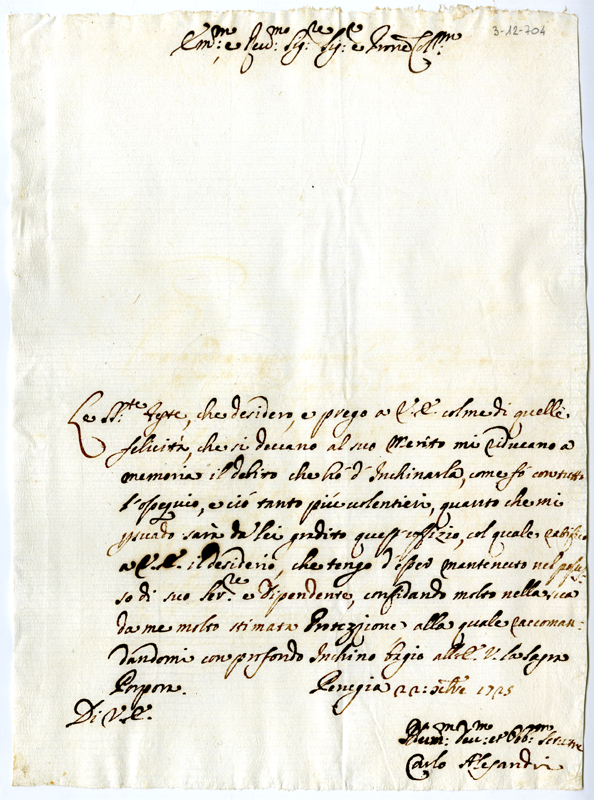 3-12-704
Em.mo e Rev.mo Sig.re Sig.re e Prone Col.mo
Le SS.te Feste, che desidero, e prego a V.E. colme di quelle
felicità, che si deccano al suo Merito mi riducano a
memoria il debito che hò d'Inchinarla, come fò con tutto
l'ossequio, e ciò tanto più volentieri, quanto che mi
psuado sarà da lei gradito quest'offizio, col quale ratifico
a V.E. il desiderio, che tengo d'esser mantenuto nel posses-
so di suo Ser.re e Dipendente, confidando molto nella sua
da me molto stimata Protezzione alla quale raccoman-
dandomi con profondo Inchino bagio all'E.V. la Sagra
Porpora. Perugia 22: Xbre 1725
Di V.E.
Hum.mo dev.mo et Obb.mo Serure
Carlo Alesandri